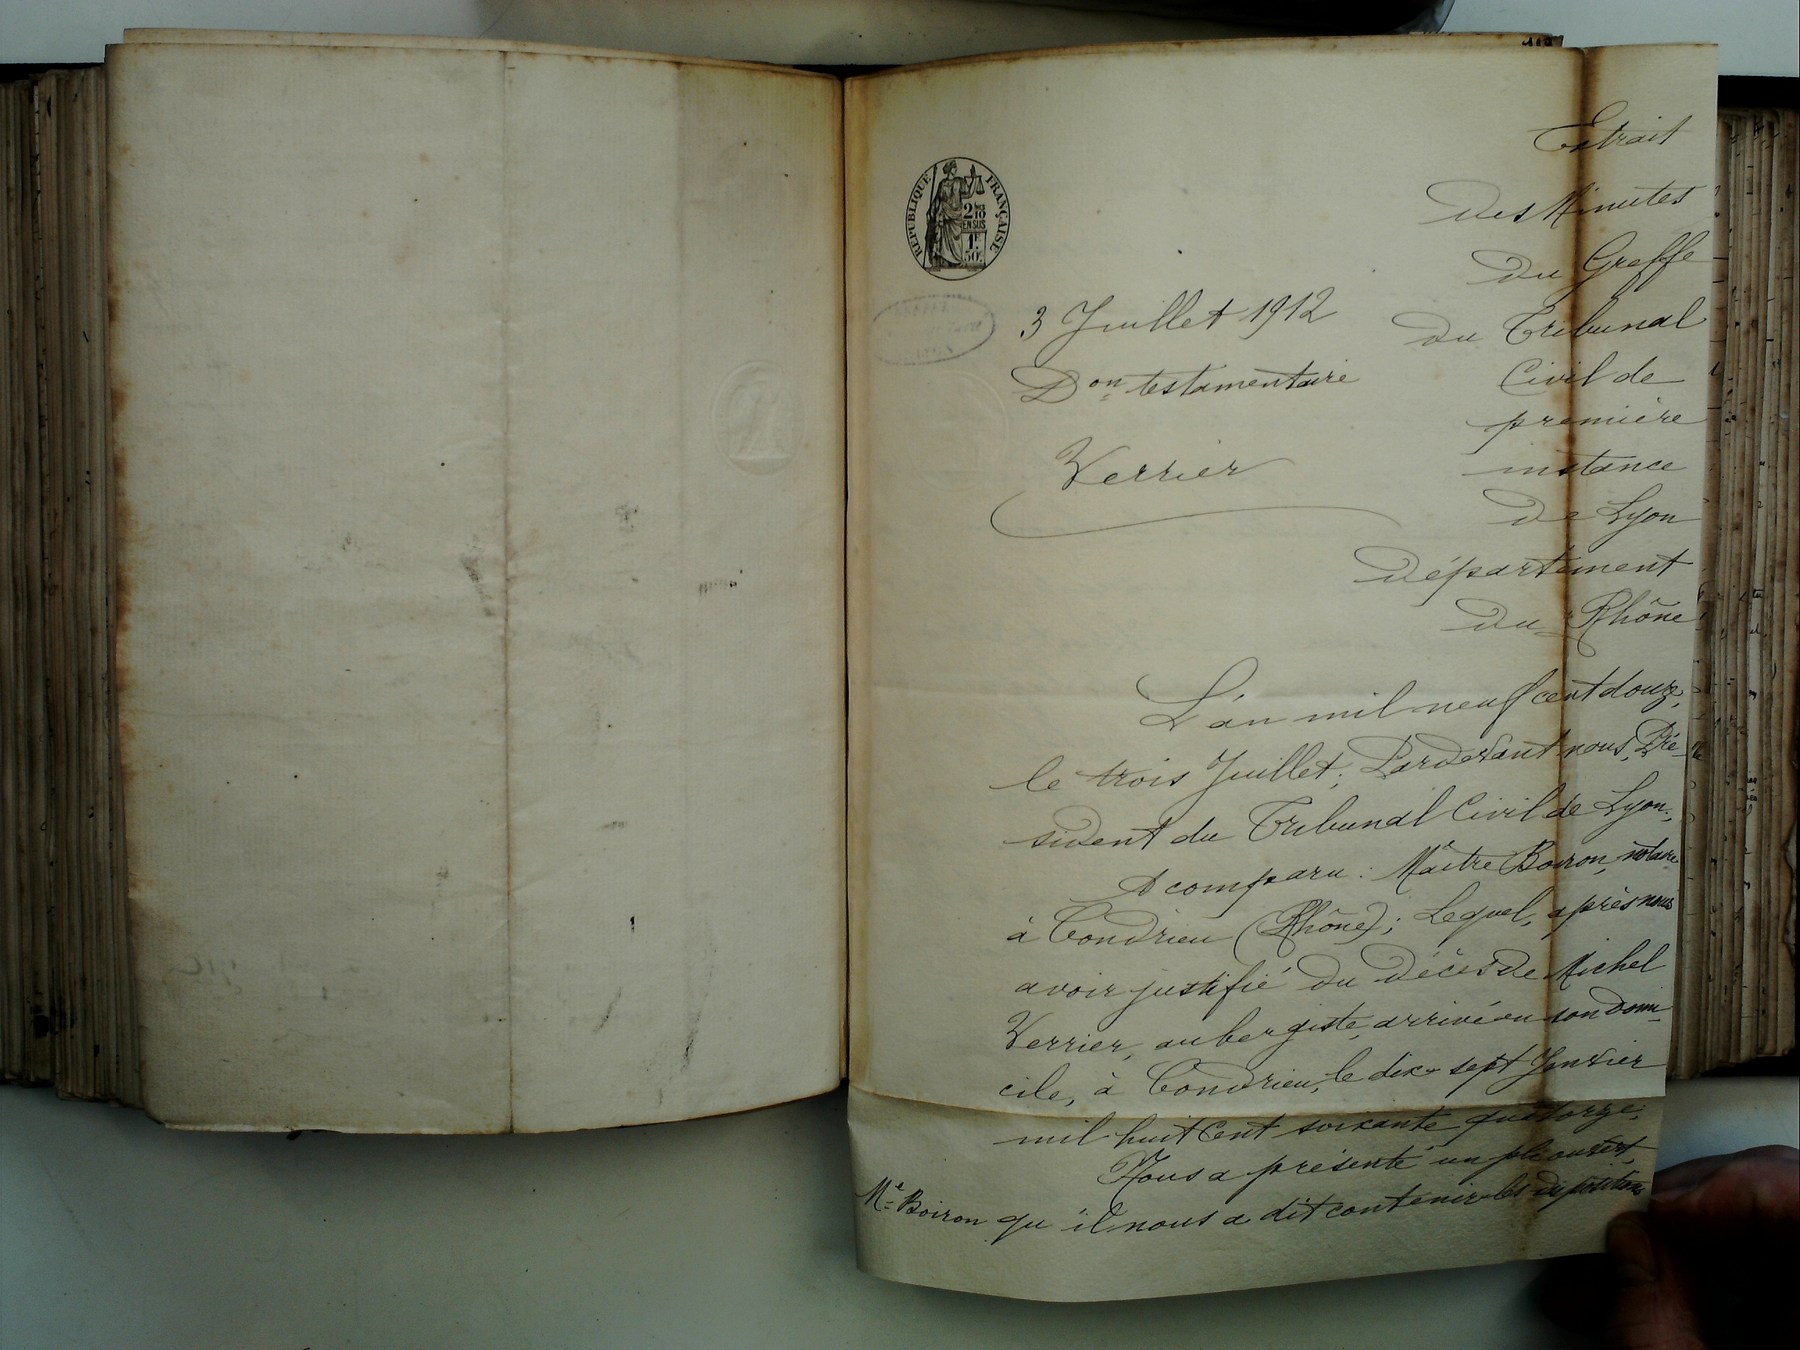 RÉPUBLIQUE FRANÇAISE
2/10
EN SUS
1F
50c
Extrait
des Minutes
du Greffe
du Tribunal
Civil de
première
instance
de Lyon
département
du Rhône
3 Juillet 1912
Don testamentaire
Verrier
L'an mil neuf cent douze,
le trois Juillet; Pardevant nous, Pré-
sident du Tribunal Civil de Lyon;
A comparu: Maître Boiron, notaire
à Condrieu (Rhône); Lequel, après nous
avoir justifié du décès de Michel
Verrier, aubergiste, arrivé en son domi-
cile, à Condrieu, le dix-sept Janvier
mil huit cent soixante quatorze,
Nous a présenté un pli ouvert,
Me Boiron qu'il nous a dit contenir les dispositions